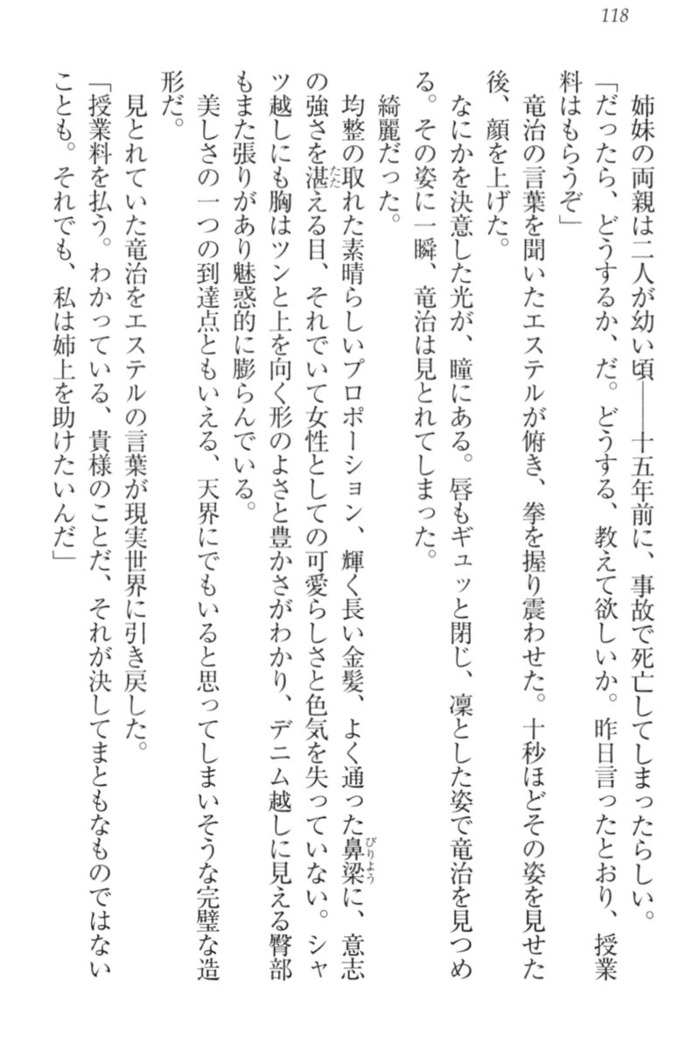 118
姉妹の両親は二人が幼い頃――十五年前に、事故で死亡してしまったらしい。
「だったら、どうするか、だ。どうする、教えて欲しいか。昨日言ったとおり、授業
料はもらうぞ」
竜治の言葉を聞いたエステルが俯き、拳を握り震わせた。十秒ほどその姿を見せた
後、顔を上げた。
なにかを決意した光が、瞳にある。唇もギュッと閉じ、凜とした姿で竜治を見つめ
る。その姿に一瞬、竜治は見とれてしまった。
綺麗だった。
均整の取れた素晴らしいプロポーション、輝く長い金髪、よく通った鼻梁に、意志
の強さを湛える目、それでいて女性としての可愛らしさと色気を失っていない。シャ
ツ越しにも胸はツンと上を向く形のよさと豊かさがわかり、デニム越しに見える臀部
もまた張りがあり魅惑的に膨らんでいる。
美しさの一つの到達点ともいえる、天界にでもいると思ってしまいそうな完璧な造
形だ。
見とれていた竜治をエステルの言葉が現実世界に引き戻した。
「授業料を払う。わかっている、貴様のことだ、それが決してまともなものではない
ことも。それでも、私は姉上を助けたいんだ」